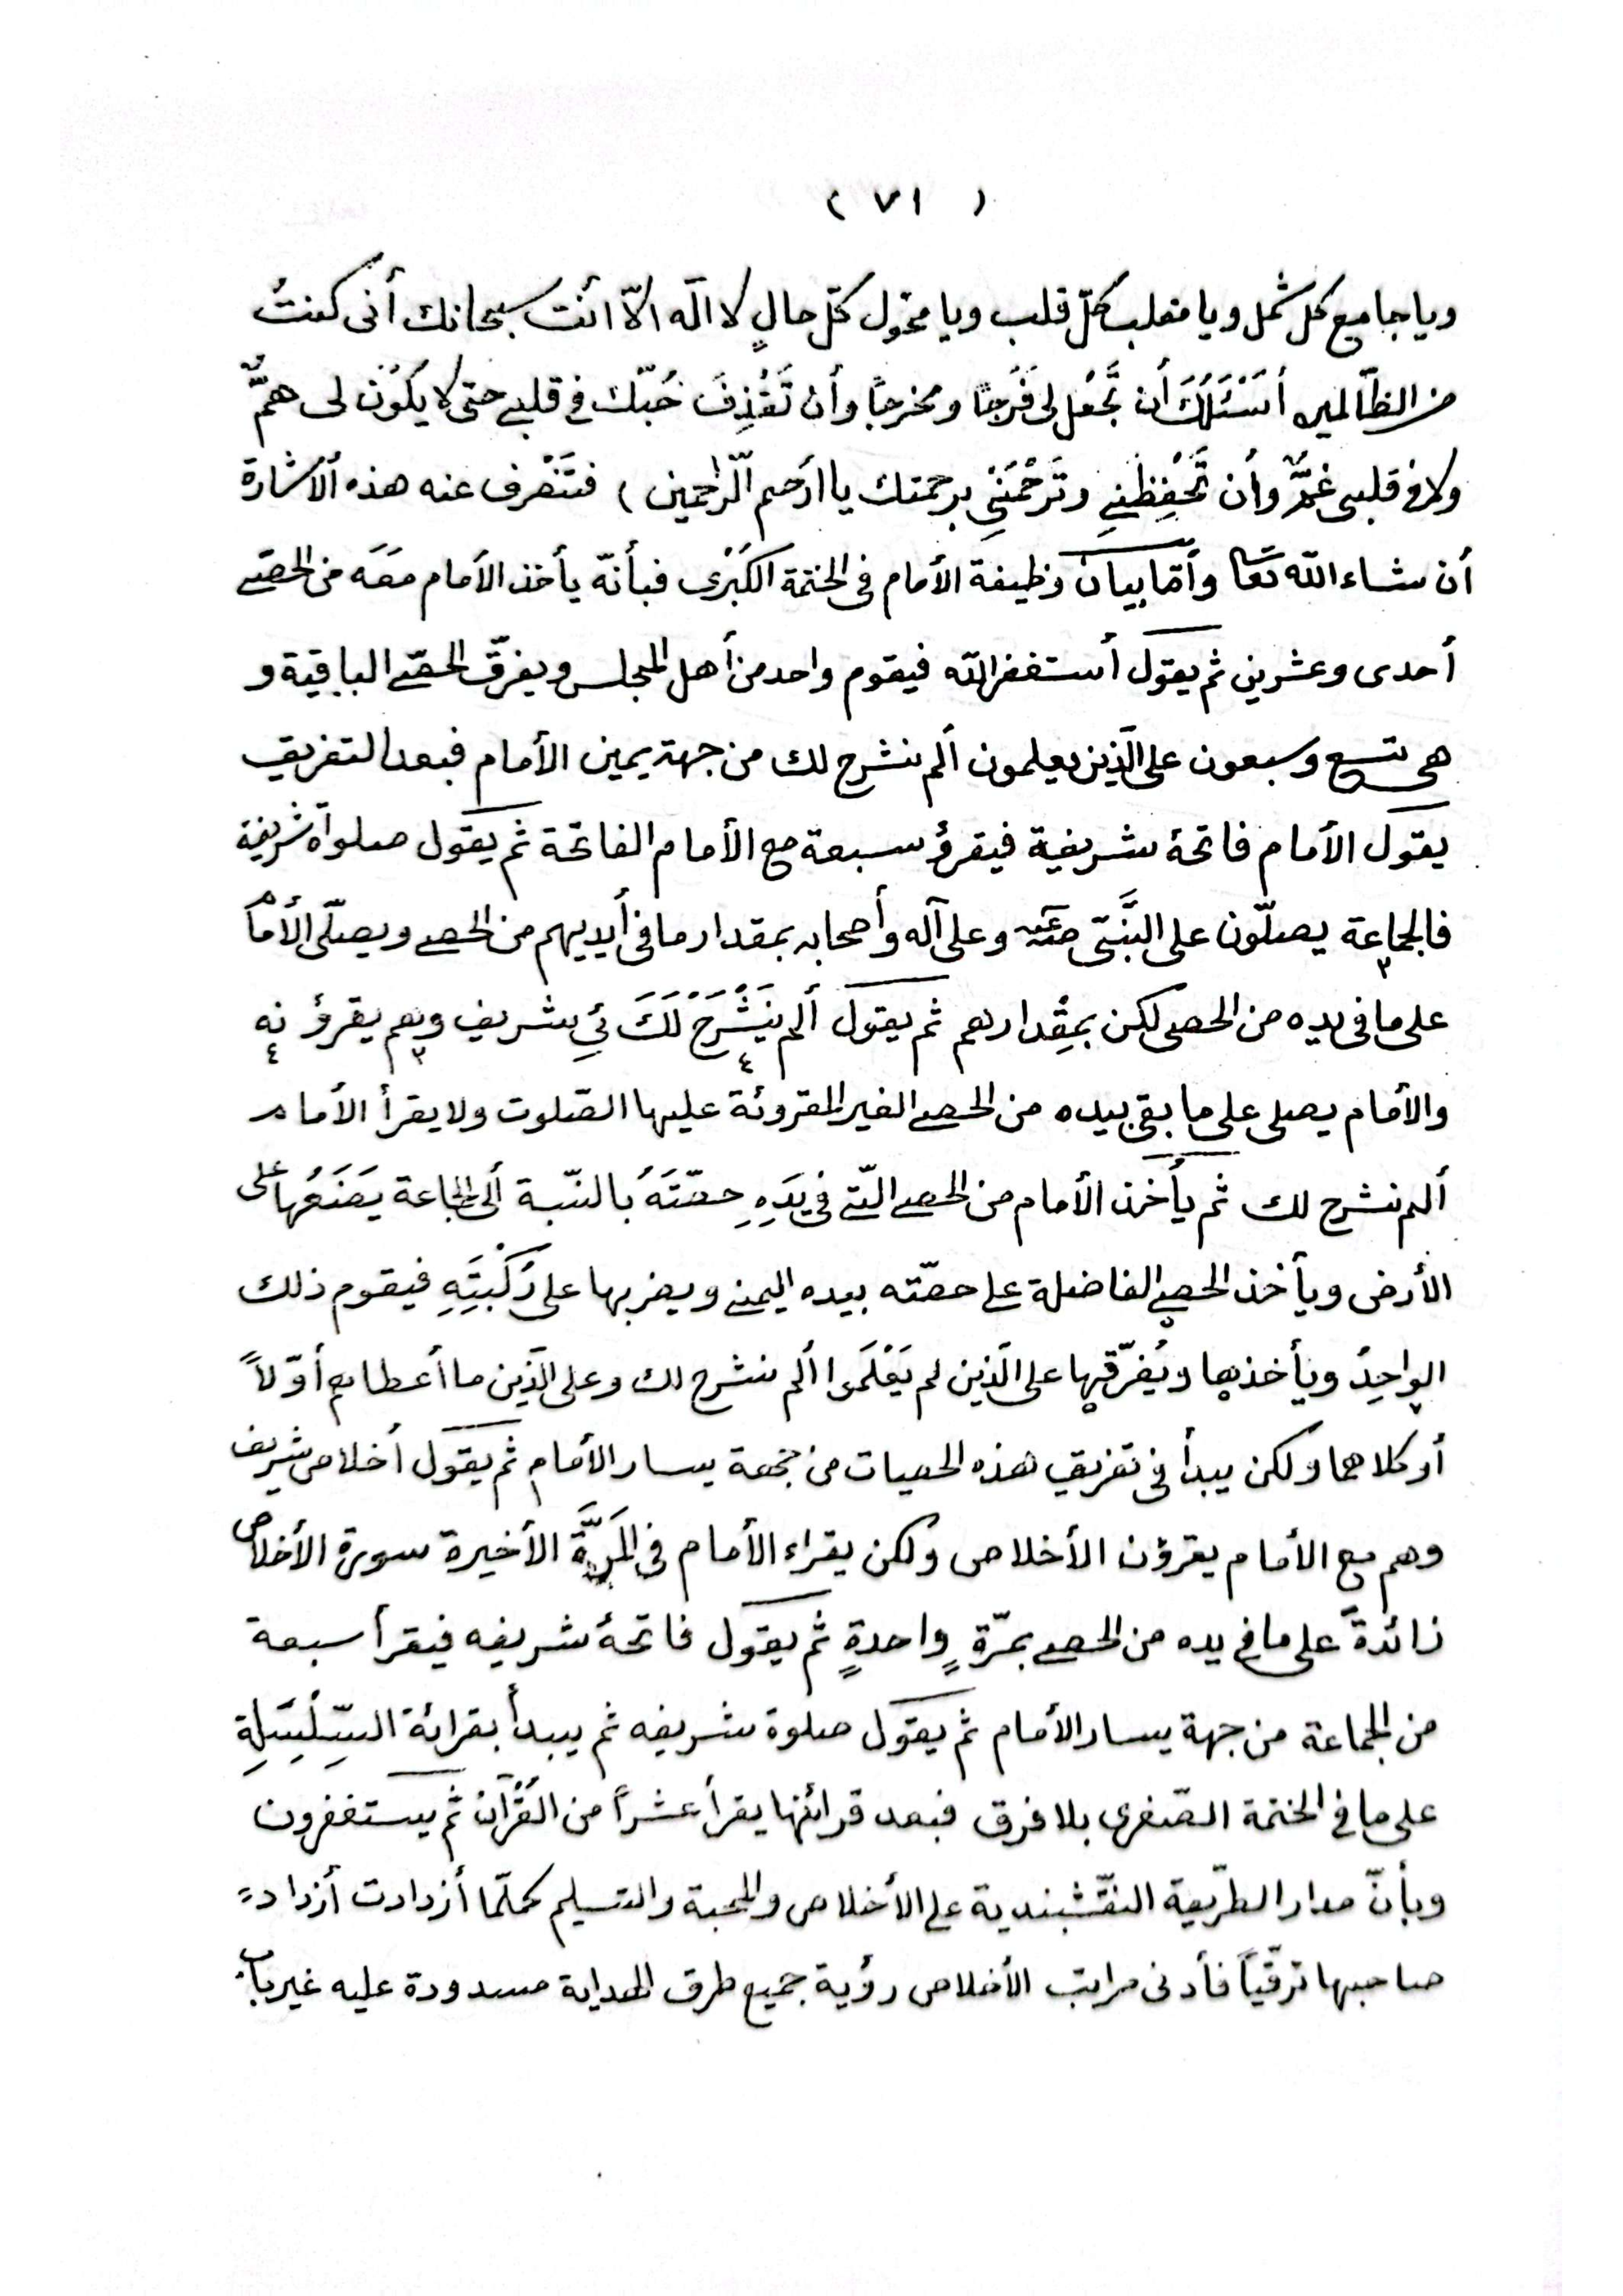 ( ٧١ )
وياجامع كل شمل ويا مقلب كلّ قلب ويا محوّل كلّ حالٍ لا اله الاّ انت سبحانك أنى كنتُ
من الظّالمين أسْئَلُكَ أن تَجْعل لى فَرَجًا ومخرجًا وأن تَقْذِفَ حُبّك فى قلبى حتى لا يكُوْن لى همٌّ
ولا فى قلبى غمٌّ وأن تَحْفِظَنِى وتَرْحَمَنِى برحمتك يا ارَحم الرّٰحمين ) فتَنْصرف عنه هذه الأشارة
أن شاء الله تعا وأمّا بيان وظيفة الأمام فى الختمة الكبْرى فبأنّه يأخذ الأمام مَعَه من الحصى
أحدى وعشرين ثم يقول أستغفرالله فيقوم واحد من أهل المجلس ويفرّق الحصى الباقية و
هى تسع وسبعون على الّذين يعلمون ألم نشرح لك من جهة يمين الأمام فبعد التفريق
يقول الأمام فاتحۀ شريفة فيقرؤ سبعة مع الأمام الفاتحة ثم يقول صلواة شريفة
فالجماعة يصلّون على النَّبىّ صلعم وعلى آله وأصحابه بمقدار ما فى أيديهم من الحصى ويصلّى الأمام
على ما فى يده من الحصى لكن بمِقْدارهم ثم يقول ألم نَشْرَحْ لَكَ ئى شريف وهم يقرؤنه
والأمام يصلى على ما بقى بيده من الحصى الغير المقروئة عليها الصّلوت ولا يقرأ الأمام
ألم نشرح لك ثم يأخذ الأمام من الحصى الّتى فى يَدِهِ حصّتَهُ بالنّسبة ألى الجماعة يَضَعُها على
الأرض ويأخذ الحصى الفاضلة على حصّته بيده اليمنى ويضربها على رُكْبَتِهِ فيقوم ذلك
الواحِدُ ويأخذها ويُفرّقها على الّذين لم يَعْلَموا ألم نشرح لك وعلى الّذين ما أعطاهم أوّلاً
أو كلاهما ولكن يبدأ فى تفريق هذه الحصيات من جهة يسار الأمام ثم يقول أخلاص شريف
وهم مع الأمام يقرؤن الأخلاص ولكن يقراء الأمام فى المَرَّة الأخيرة سورة الأخلاص
زائدةً على ما فى يده من الحصى بمرّةٍ واحدةٍ ثم يقول فاتحۀ شريفه فيقرأ سبعة
من الجماعة من جهة يسار الأمام ثم يقول صلوة شريفه ثم يبدأ بقرائة السِّلْسِلَةِ
على ما فى الختمة الصّغرى بلا فرق فبعد قرائتها يقرأ عشراً من القُرْآن ثم يستغفرون
وبأنّ مدار الطّريقة النقّشبندية على الأخلاص والمحبة والتسليم كملّما أزدادت أزداد
صاحبها ترقّيًا فأدنى مراتب الأخلاص رؤية جميع طرق الهداية مسدودة عليه غير باب